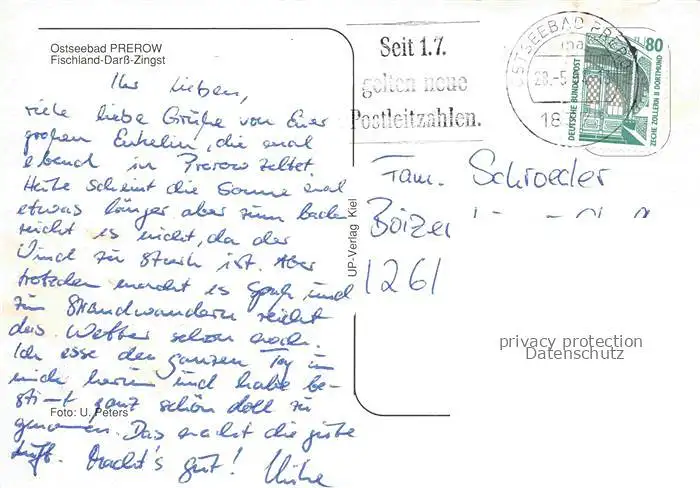 Ostseebad PREROW
Fischland-Darß-Zingst
Ihr Lieben,
viele liebe Grüße von Eurer
großen Enkelin, die mal
eben in Prerow zeltet.
Heute scheint die Sonne mal
etwas länger aber zum baden
reicht es nicht, da der
Wind zu stark ist. Aber
trotzdem macht es Spaß und
zum Strandwandern reicht
das Wetter schon noch.
Ich esse den ganzen Tag in
mich herein und habe be-
stimmt ganz schön doll zu
genommen. Das macht die gute
Luft. Macht's gut!
Foto: U. Peters
UP-Verlag Kiel
Seit 1.7.
gelten neue
Postleitzahlen.
OSTSEEBAD PREROW
28.-5.
18
80
DEUTSCHE BUNDESPOST
ZECHE ZOLLERN II DORTMUND
Fam. Schroeder
Boizen
1261
privacy protection
Datenschutz